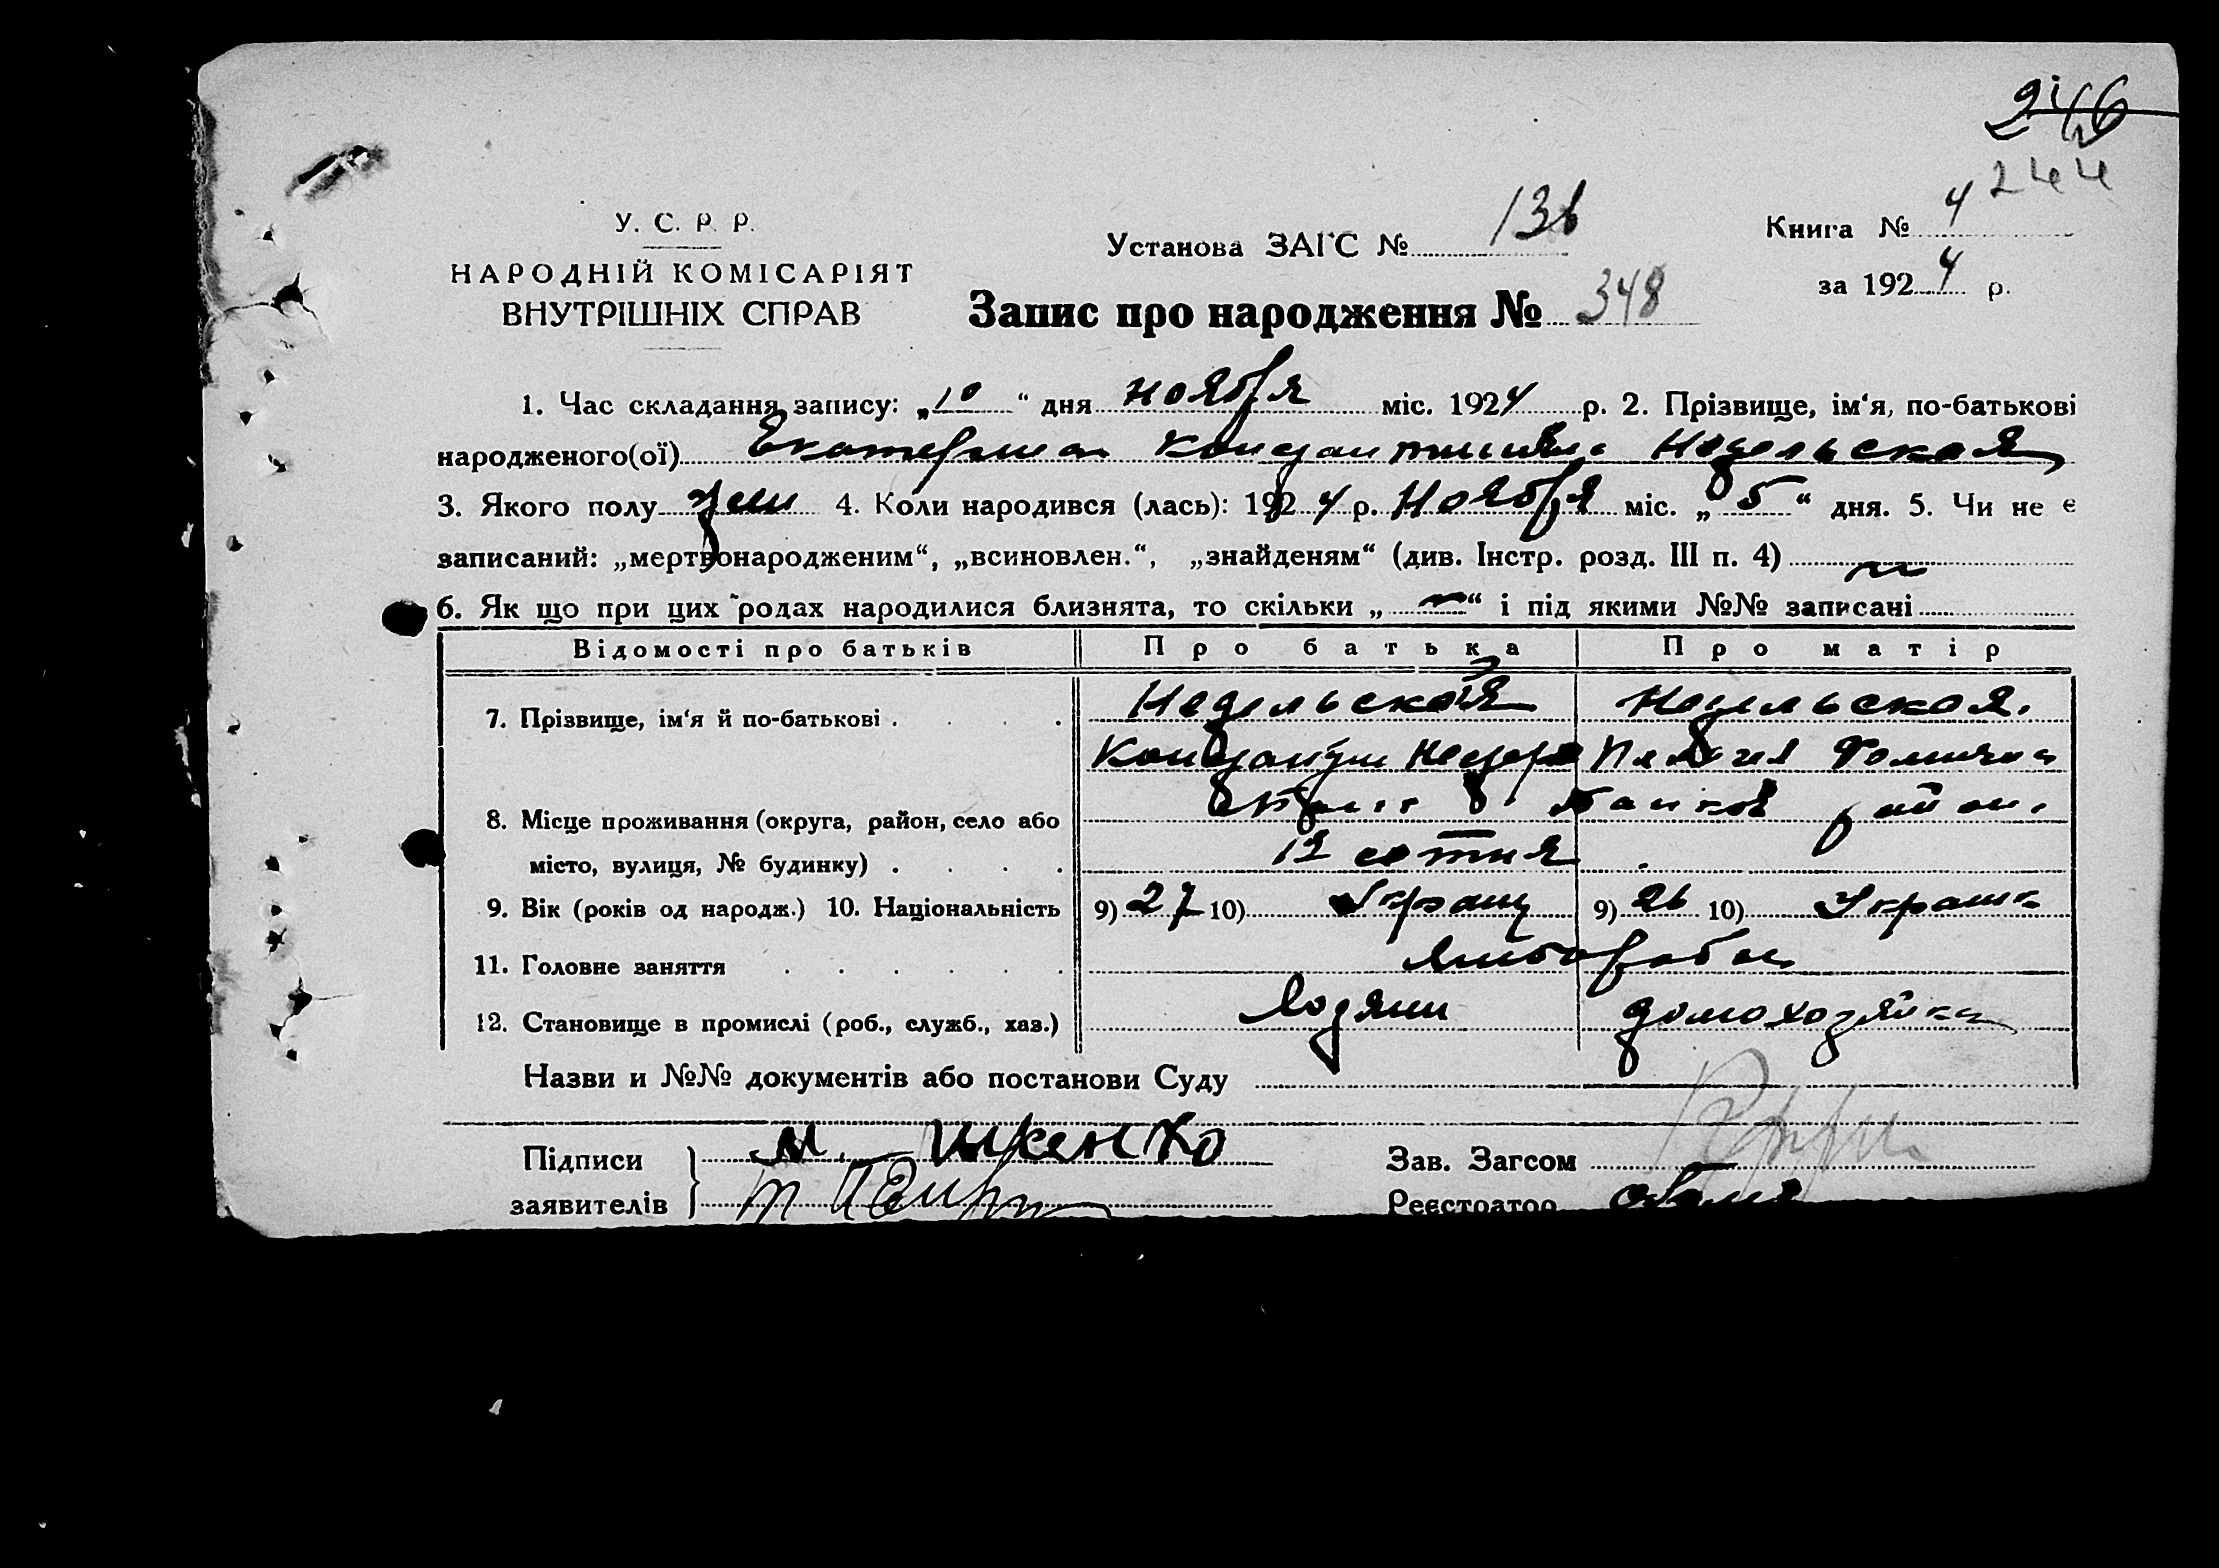 246
244
У. С. Р. Р.
НАРОДНІЙ КОМІСАРІЯТ
ВНУТРІШНІХ СПРАВ
Установа ЗАГС № 136
Книга № 4
за 1924 р.
Запис про народження № 348
1. Час складання запису: „10“ дня ноября міс. 1924 р. 2. Прізвище, ім‘я, по-батькові
народженого(ої) Екатерина Константиновна Недельская
3. Якого полу жен 4. Коли народився (лась): 1924 р. Ноября міс. „5“ дня. 5. Чи не є
записаний: „мертвонародженим“, „всиновлен.“, „знайденям“ (див. Інстр. розд. III п. 4)
6. Як що при цих родах народилися близнята, то скільки „ “ і під якими №№ записані
Відомості про батьків Про батька Про матір
7. Прізвище, ім‘я й по-батькові . . . . Недельской Недельская.
Пелагия Фомична
8. Місце проживання (округа, район, село або район
місто, вулиця, № будинку) . . . . 12 сотня
9. Вік (років од народж.) 10. Національність 9) 27 10) Украин 9) 26 10) Украинк
11. Головне заняття . . . . . .
12. Становище в промислі (роб., служб., хаз.) Хозяин домохозяйка
Назви и №№ документів або постанови Суду
Підписи
заявителів
Зав. Загсом
Реєстратор